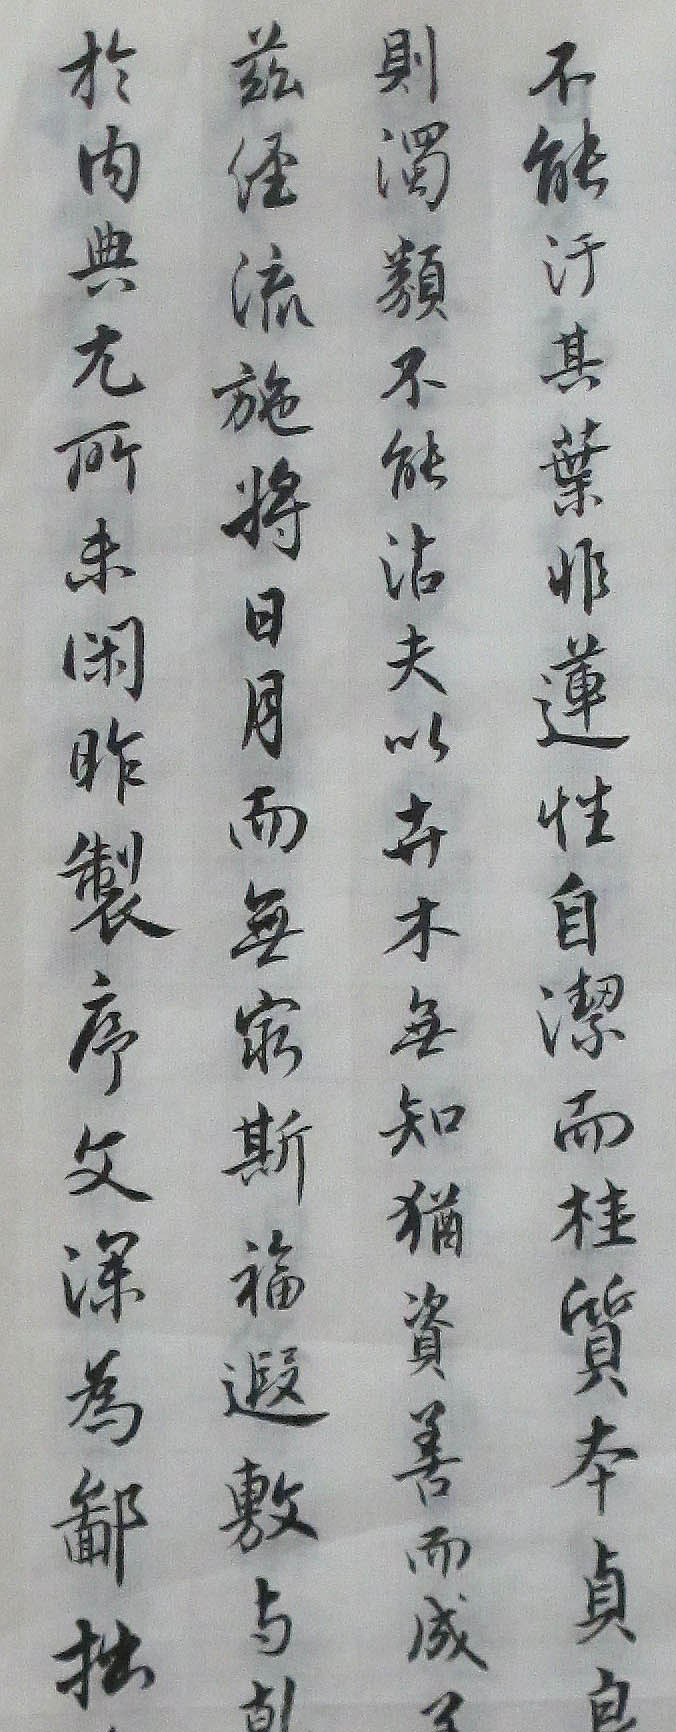 不能汙其葉非蓮性自潔而桂質本貞良
則濁類不能沾夫以卉木無知猶資善而成善
茲經流施將日月而無窮斯福遐敷与乾
於內典尤所未閑昨製序文深為鄙拙